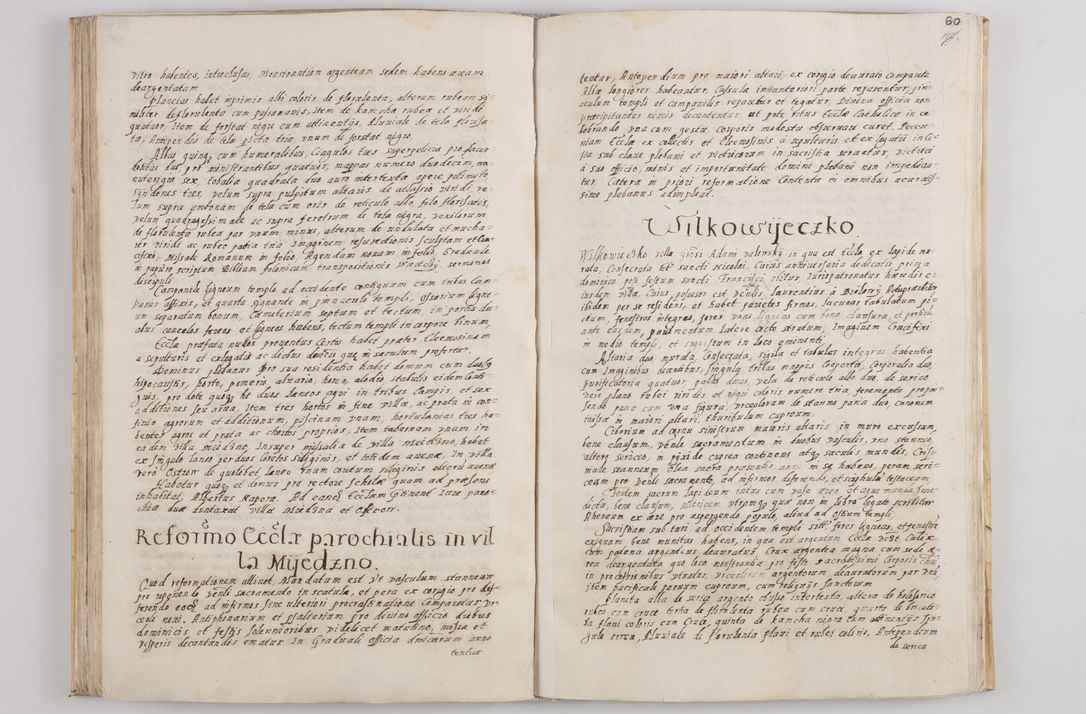 vitro habentes, introclusas, Monstrantiam argenteam sedem habens aream
deargentatam.
Plancias habet inprimis albi coloris de florulenta, alteram rubeam si-
militer de florulenta cum passamanis, Item de kamcha rubea et viridi
quatuor, Item de forstat nigra cum attinentijs, Pluviale de tela
ta, Antipendia de tela picta tria, vnum de forstat nigro.
Albas quinq, cum humeralibus, Cingulos tres superpelicia pro sacer-
dotibus duo, pro ministrantibus quatuor, mappas numero duodecim, ma-
nutergia sex, tobalia quadrata duo auro intertexta opere polimito,
Sindones tres, velum supra pulpitum altaris de viridi, ve-
lum supra ambonam de tela cum oris de reticulo albo filo
velum quadragesimale ac supra feretrum de tela nigra, vexillorum
de florulenta rubea par vnum minus, alterum de vndulata et mucha-
ier viridi ac rubeo Imaginem resurectionis sculptam et Cru-
cifixi, Missale Romanum in folio, Agendam novam in folio, Graduale
in papiro scriptum Bibliam polonicam transpositionis sermones
discipuli.
Campanile ligneum templo ad occidente contiguum cum tribus Cam-
panis affixis, et quarta signante in pinnaculi templi, Ossorium ligne-
um separatum bonum, Cæmeterium septum et tectum, in portis du-
abus cancelos ferreos et ligneos habens, tectum templi in corpore bonum,
Eccla præfata nullos proventus certos habet præter Eleemosinam
a sepulturis et ex legatis ac dictus que in vasculum profertur.
Dominus plebanus pro sua residentia habet domum cum duobus
hipocaustis, horto, pomerio, aluario, horreo, alodio stabulis eidem Conti-
guis, pro dote quoq ht duos laneos agri in tribus Campis, et sex
additiones seu arua. Item tres hortos in fine villæ, ac prata in con-
finio agrorum et additionum, piscinam vnam, hortulanias tres ha-
bentes agros et prata ac proprios. Item tabernam vnam in
eadem villa Miedzno, Insuper missalia de villa Miedzno, habet
ex singulo laneo per duos coretos siliginis, et totidem auenæ. In villa
vero Ostrow de quolibet laneo vnum coretum siliginis alterum auenæ
Habetur quoq et domus pro rectore scholæ quam ad præsens
inhabitat, Albertus kapera. Ad eande Ecclam ptinent Jure paro-
chiæ duæ duntaxat villæ Miedzna et Ostrow.
Reformo Ecclæ parochialis in vil
la Mijedzno.
Quod reformationem attinet, Mandatum est vt vasculum stanneum
pro reponendo venli sacramento in scatula, et pera ex corigio pro dif-
ferendo eode ad infirmos sine ulteriori procrastinatione Comparetur, vr-
ceole novæ. Antiphonarium et psalterium pro divino officio diebus
dominicis et festis solennioribus videlicet matutino, missa et
vesperis decantandis ematur. In Graduale officia diversarum anno
tentur

60
tentur, Antependium pro maiori altari, ex corigio deaurato comparetur
Albæ longiores habeantur, Casula in anteriori parte reparentur, pin-
aculum templi et campanilis reparetur et tegatur. Divina officia non
præcipitanter nimis decantentur, vt pote ritus Ecclæ Catholicæ in ce-
lebrando vna cum gestu corporis modesto observari curet. Pecun-
niam Ecclæ ex collectis et Eleemosinis à sepulturis et ex legatis in Ci-
sta sub claue plebani et victricorum in sacristia seruetur, victrici
a suo officio, minis et importunitate domini plebani non impedian-
tur, Cætera in priori reformatione Contenta in omnibus accuratis-
sime plebanus adimpleat.
Wilkowijeczko
Wilkowieczko villa Gnosi Adami in qua est Eccla ex lapide mu-
rata, Consecrata tit sancti Nicolai, Cuius anniuersaria dedicatio prima
dominica post festum sancti Francisci obitus, Jurispatronatus hæredis e-
iusdem villæ, Cuius possesor est venlis, laurentius à
ibidem per se residens, et habet parietes firmos, lacunar tabulatum pi-
ctum, fenestras integras, fores vnas ligneas cum bona clausura, et porticu
ante easdem, pauimentum latere cocto stratum, Imaginem Crucifixi
in medio templi, et suggestum in loco eminenti.
Altaria duo, murata, Consecrata, sigilla et tabulas integras habentia
cum Imaginibus decentibus, singula tribus mappis cooperta, Corporalia duo,
purificatoria quatuor, pallas duas, vela de reticulo albo duo, de serico
vero plano rubei viridis et nigri coloris numero tria, feramenta pro pin-
sendo pane cum vna figura, vrceolorum de stanno paria duo, canonem
missæ in maiori altari, thuribulum cupreum.
Ciborium ad cornu sinistrum maioris altaris in muro excisum,
bene clausum, venle sacramentum in duobus vasculis, vno stanneo,
altero sericeo, in pixide cuprea continens atq sacculis mundis, Cris-
male stanneum Olea sacra præsentis anni in se habens, peram seri-
ceam pro venli sacramento, ad infirmos diferendo, et scaphula testaceam
Fontem sacrum lapideum intus cum vase æreo et aqua munda bene-
dicta, bene clausum, Metricam vtrumq quæ non in libro ligato scribitur
Aheneum ex ære pro aspergendo populo, aliud ad ostium templi.
Sacristiam sub tecti ad occidentem templi sitt fores ligneas, et fenestra
exiguam bene munitas habens, in qua est argentum Ecclæ vide Calix
cum patena argenteus deauratus, Crux argentea magna cum sede æ-
rea deargentata quo loco monstrantiæ pro festo sacratissimo Corporis chri
in processionibus vtuntur, vrceolorum argenteorum deauratorum par vnu
item pacificale paruum cupreum, cum reliquijs sanctorum.
Planeta alba de serico argento chusso intertexta, altera de
rubeo cum cruce tertia de florulenta rubea cum cruce, quarta de
ta flaui coloris cum Cruce, quinta de kancha nigra cum attinentijs sin-
gula eorum, Pluuiale de florulenta flaui et rubei coloris, Antependium
de serico